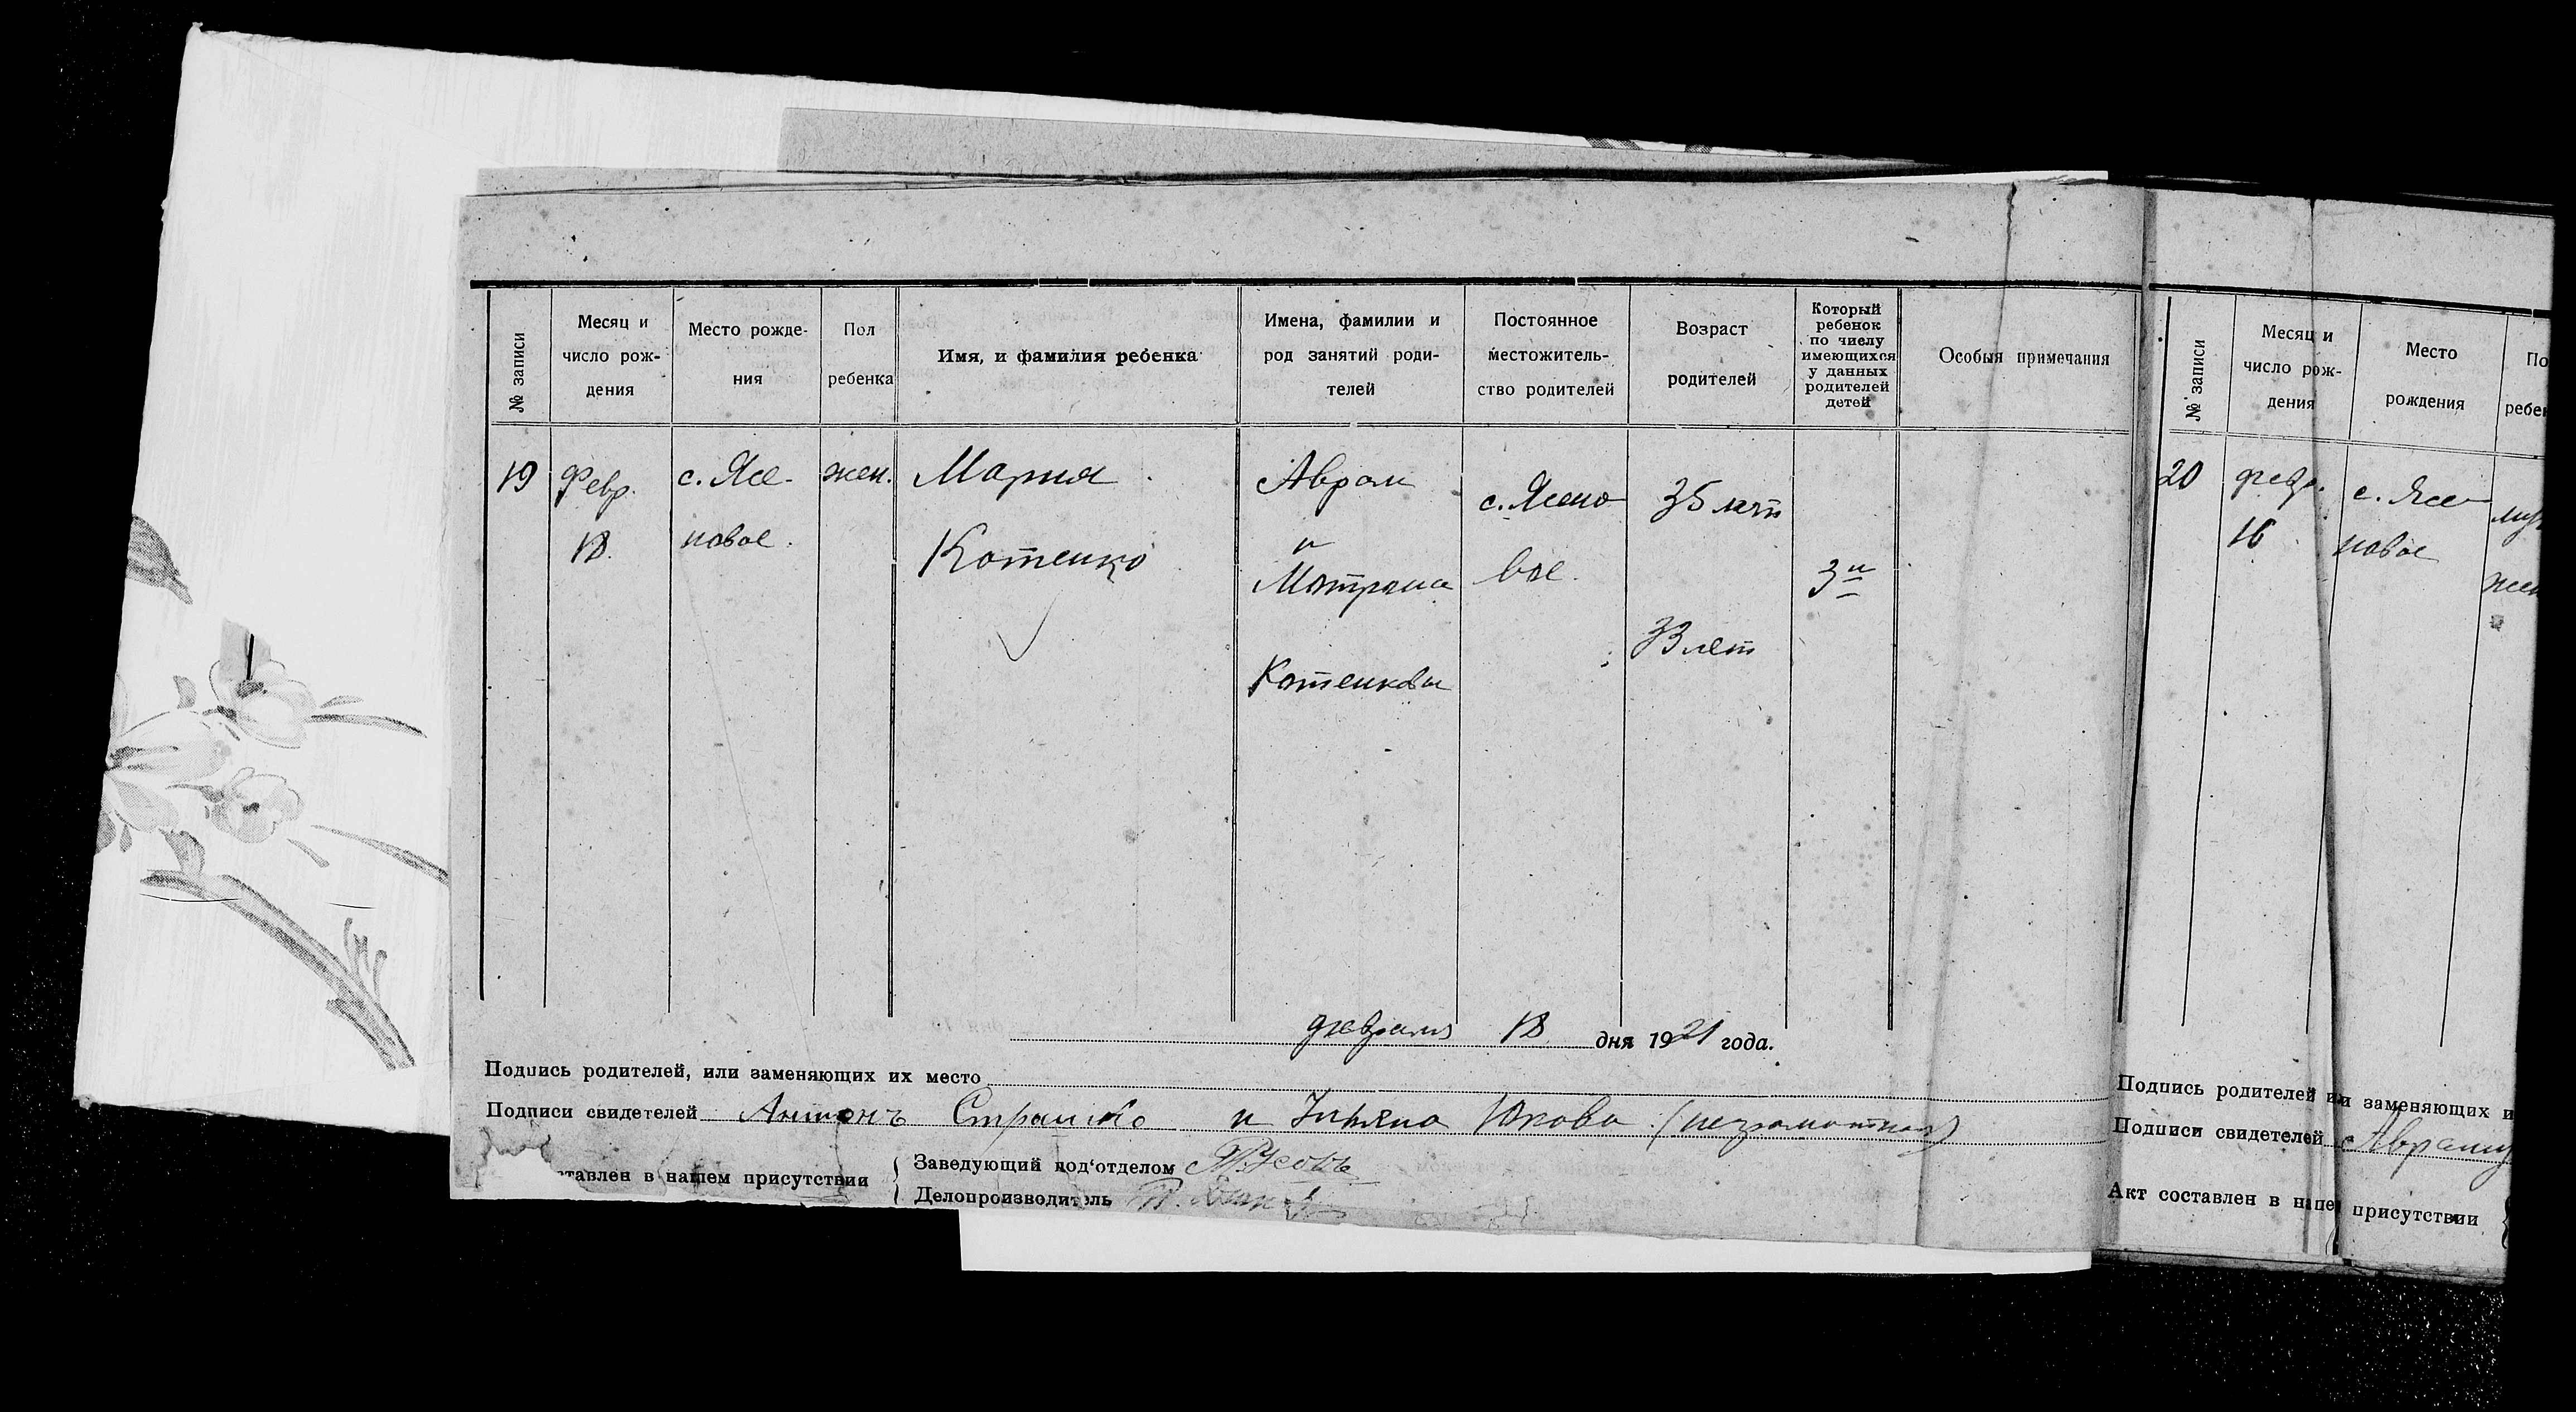 № записи
Месяц и
число рож-
дения
Место рожде-
ния
Пол
ребенка
Имя, и фамилия ребенка
Имена, фамилии и
род занятий роди-
телей
Постоянное
местожитель-
ство родителей
Возраст
родителей
Который
ребенок
по числу
имеющихся
у данных
родителей
детей
Особыя примечания
19
Февр.
18.
с. Ясе-
новое.
жен.
Мария
Котенко
Аврам
и
Мотрона
Котенковы
с. Ясено
вое.
35 лет
33 лет
3й
февраля 18 дня 1921 года.
Подпись родителей, или заменяющих их место
Подписи свидетелей Антонъ и (неграмотная)
тавлен в нашем присутствии
Заведующий под'отделом
Делопроизводитель
№ записи
Месяц и
число рож-
дения
Место
рождения
По
ребен
20
февр.
16
с. Ясе
новое
муж
жен
Подпись родителей или заменяющих и
Подписи свидетелей
Акт составлен в нашем присутствии